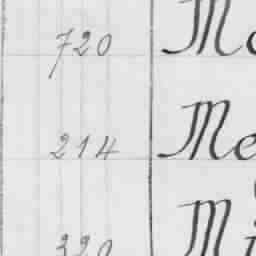 720 Ma
214 Me
320 Mi